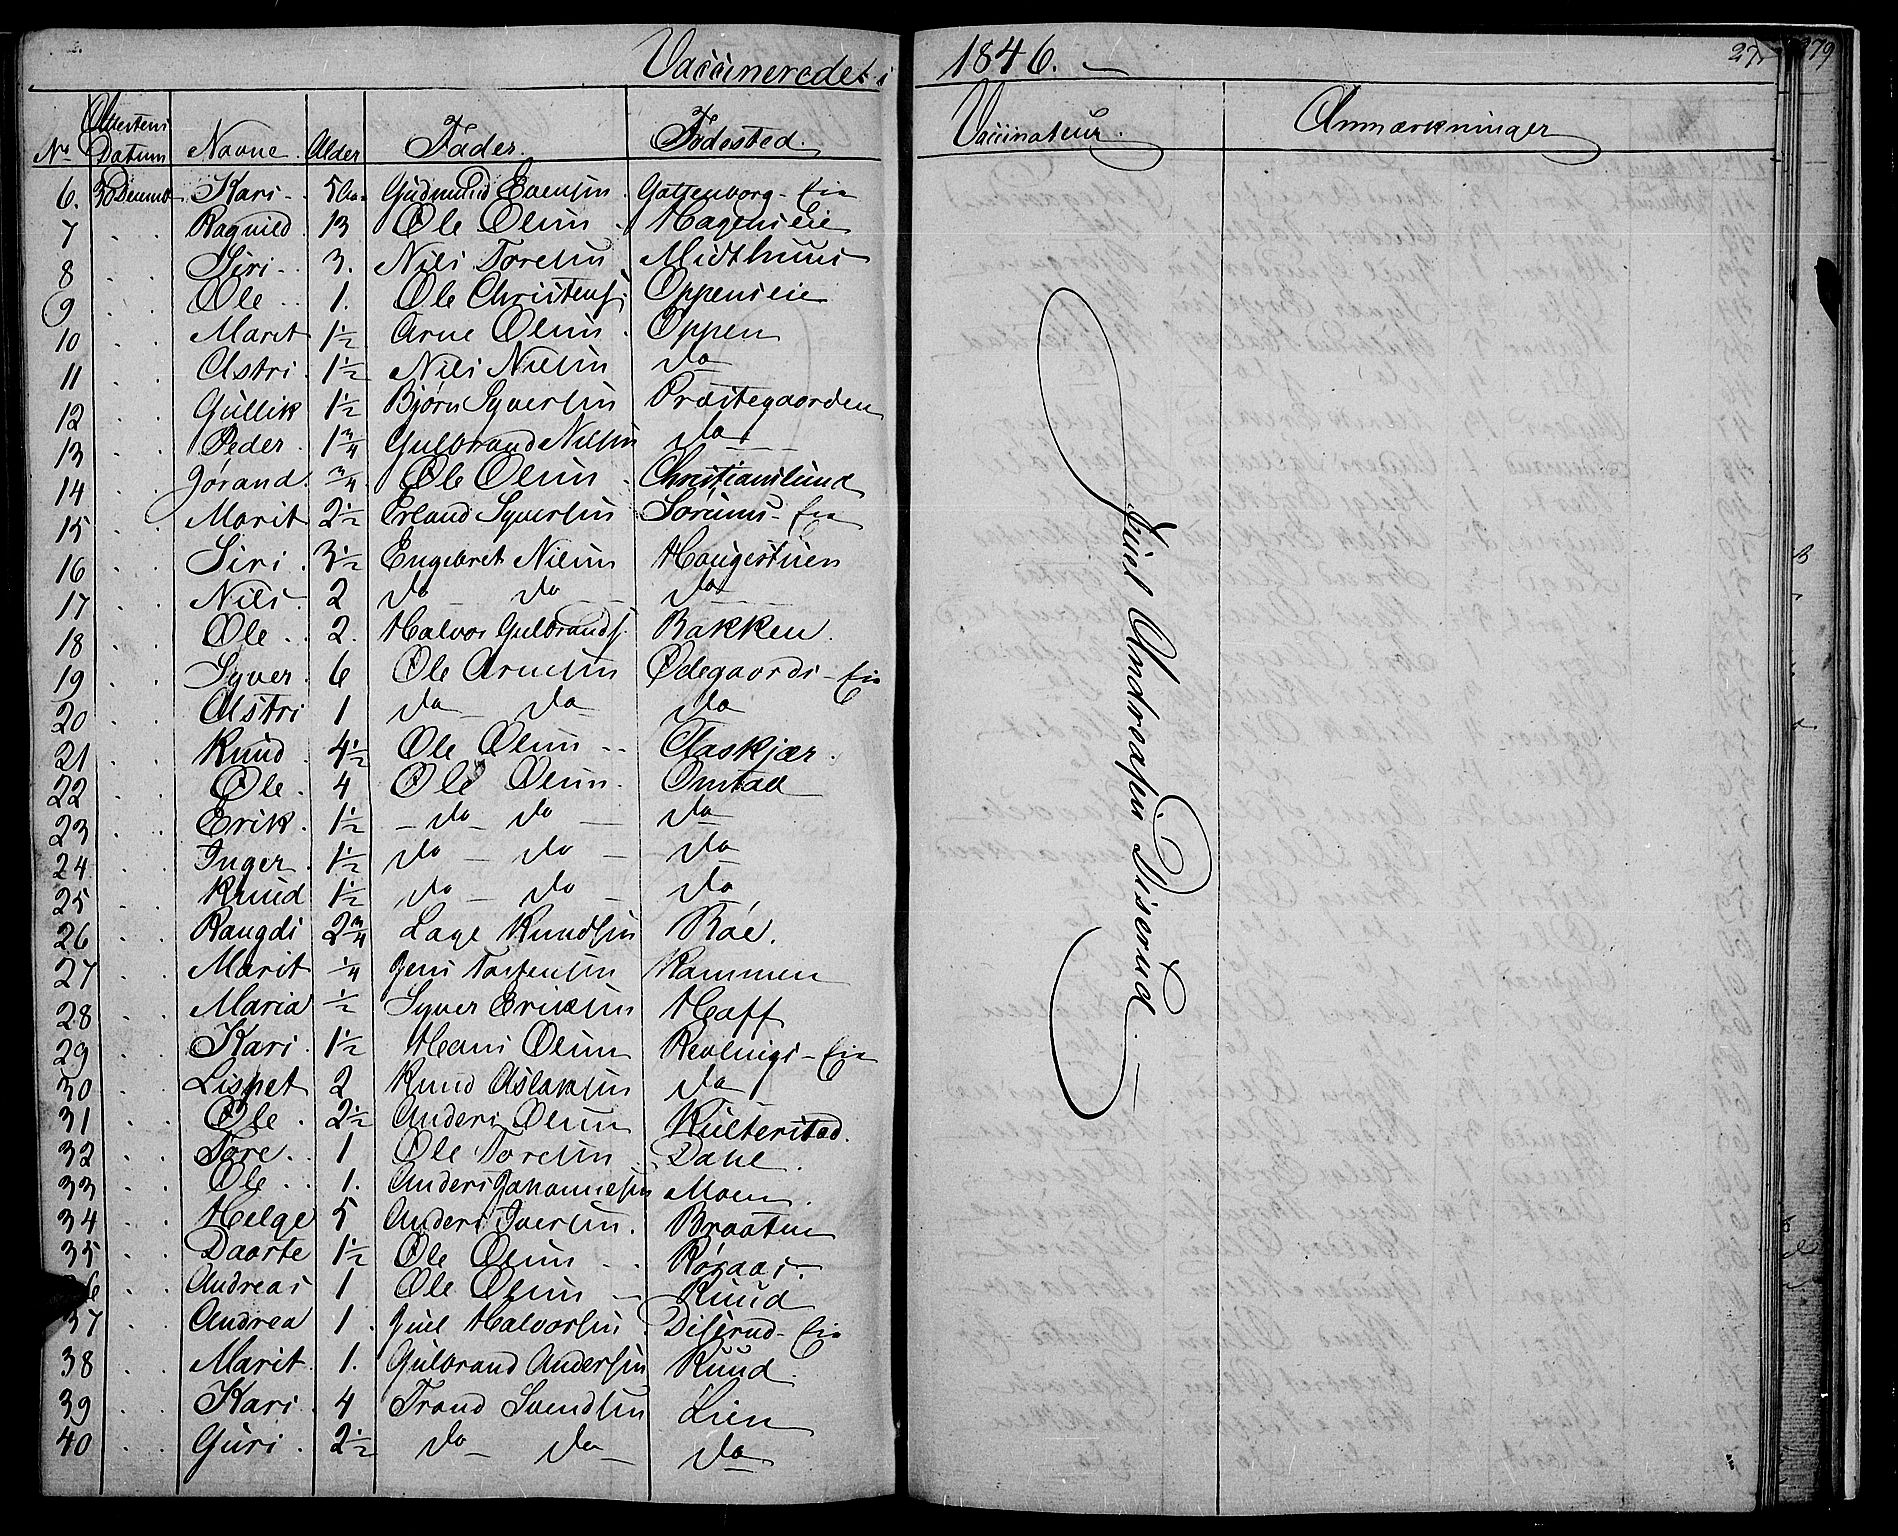 Vaccineredet i 1846.
279
Attestens
No Datum Navne. Alder Fader. Fødested. Vaccinateur. Anmærkninger
6. 30 Decemb Kari 5 Gudmund Evensen Gottenborg-Eie
7 Ragnild 13 Ole Olsen Hagenseie
8 Siri 3. Nils Toresen Midthuus
9 Ole 1. Ole Christens. Oppenseie
10 Marit 1½ Arne Olsen Oppen
11 Astri 1½ Nils Nilsen do
12 Gullik 1½ Bjørn Syversen Præstegaarden
13 Peder 1¾ Gulbrand Nilsen do
14 Jørand ¾ Ole Olsen Christianslund
15 Marit 2½ Erland Syversen Sørums-Eie
16 Siri 3½ Engebret Nilsen Haugestuen
17 Nils 2 do do do
18 Ole 2. Halvor Gulbrands. Bakken.
19 Syver 6 Ole Arnesen Ødegaards-Eie
20 Astri 1 do do do
21 Knud 4½ Ole Olsen Aaskjær.
22 Ole 4 Ole Olsen Omstad
23 Erik 1½ do do do
24 Inger 1½ do do do
25 Knud 1½ do do do
26 Rangdi 2¾ Lage Knudsen Roe.
27 Marit ¼ Jens Tostensen Kammen
28 Maria ½ Syver Eriksen Haff
29 Kari 1½ Hans Olsen -Eie
30 Lispet 2 Knud Aslaksen do
31 Ole 2½ Anders Olsen Kulterstad.
32 Tore 1 Ole Toresen Dahl.
33 Ole 1. Anders Johannesen Moen.
34 Helge 5 Anders Iversen. Braaten
35 Daarte 1½ Ole Olsen Røraas.
36 Andreas 1 Ole Olsen Ruud
37 Andrea 1 Juel Halvorsen Diserud-Eie
38 Marit 1. Gulbrand Andersen Ruud.
39 Kari 4 Trond Svendsen Lien
40 Guri 2½ do do do
Juel Andreasen Diserud.